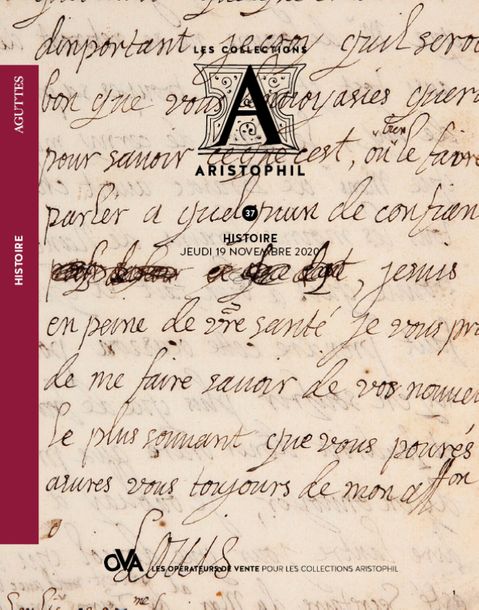 dinportant je croy quil seroi
LES COLLECTIONS
A
bon que vous menvoyasies quer
pour savoir ce que cest, ou bien le faire
ARISTOPHIL
parler a quelqun de confian
37
HISTOIRE
JEUDI 19 NOVEMBRE 2020
jesuis
en peine de vre santé je vous pr
de me faire savoir de vos nouvel
le plus souvant que vous pourés
asures vous toujours de mon affton
Louis
OVA LES OPÉRATEURS DE VENTE POUR LES COLLECTIONS ARISTOPHIL
AGUTTES
HISTOIRE